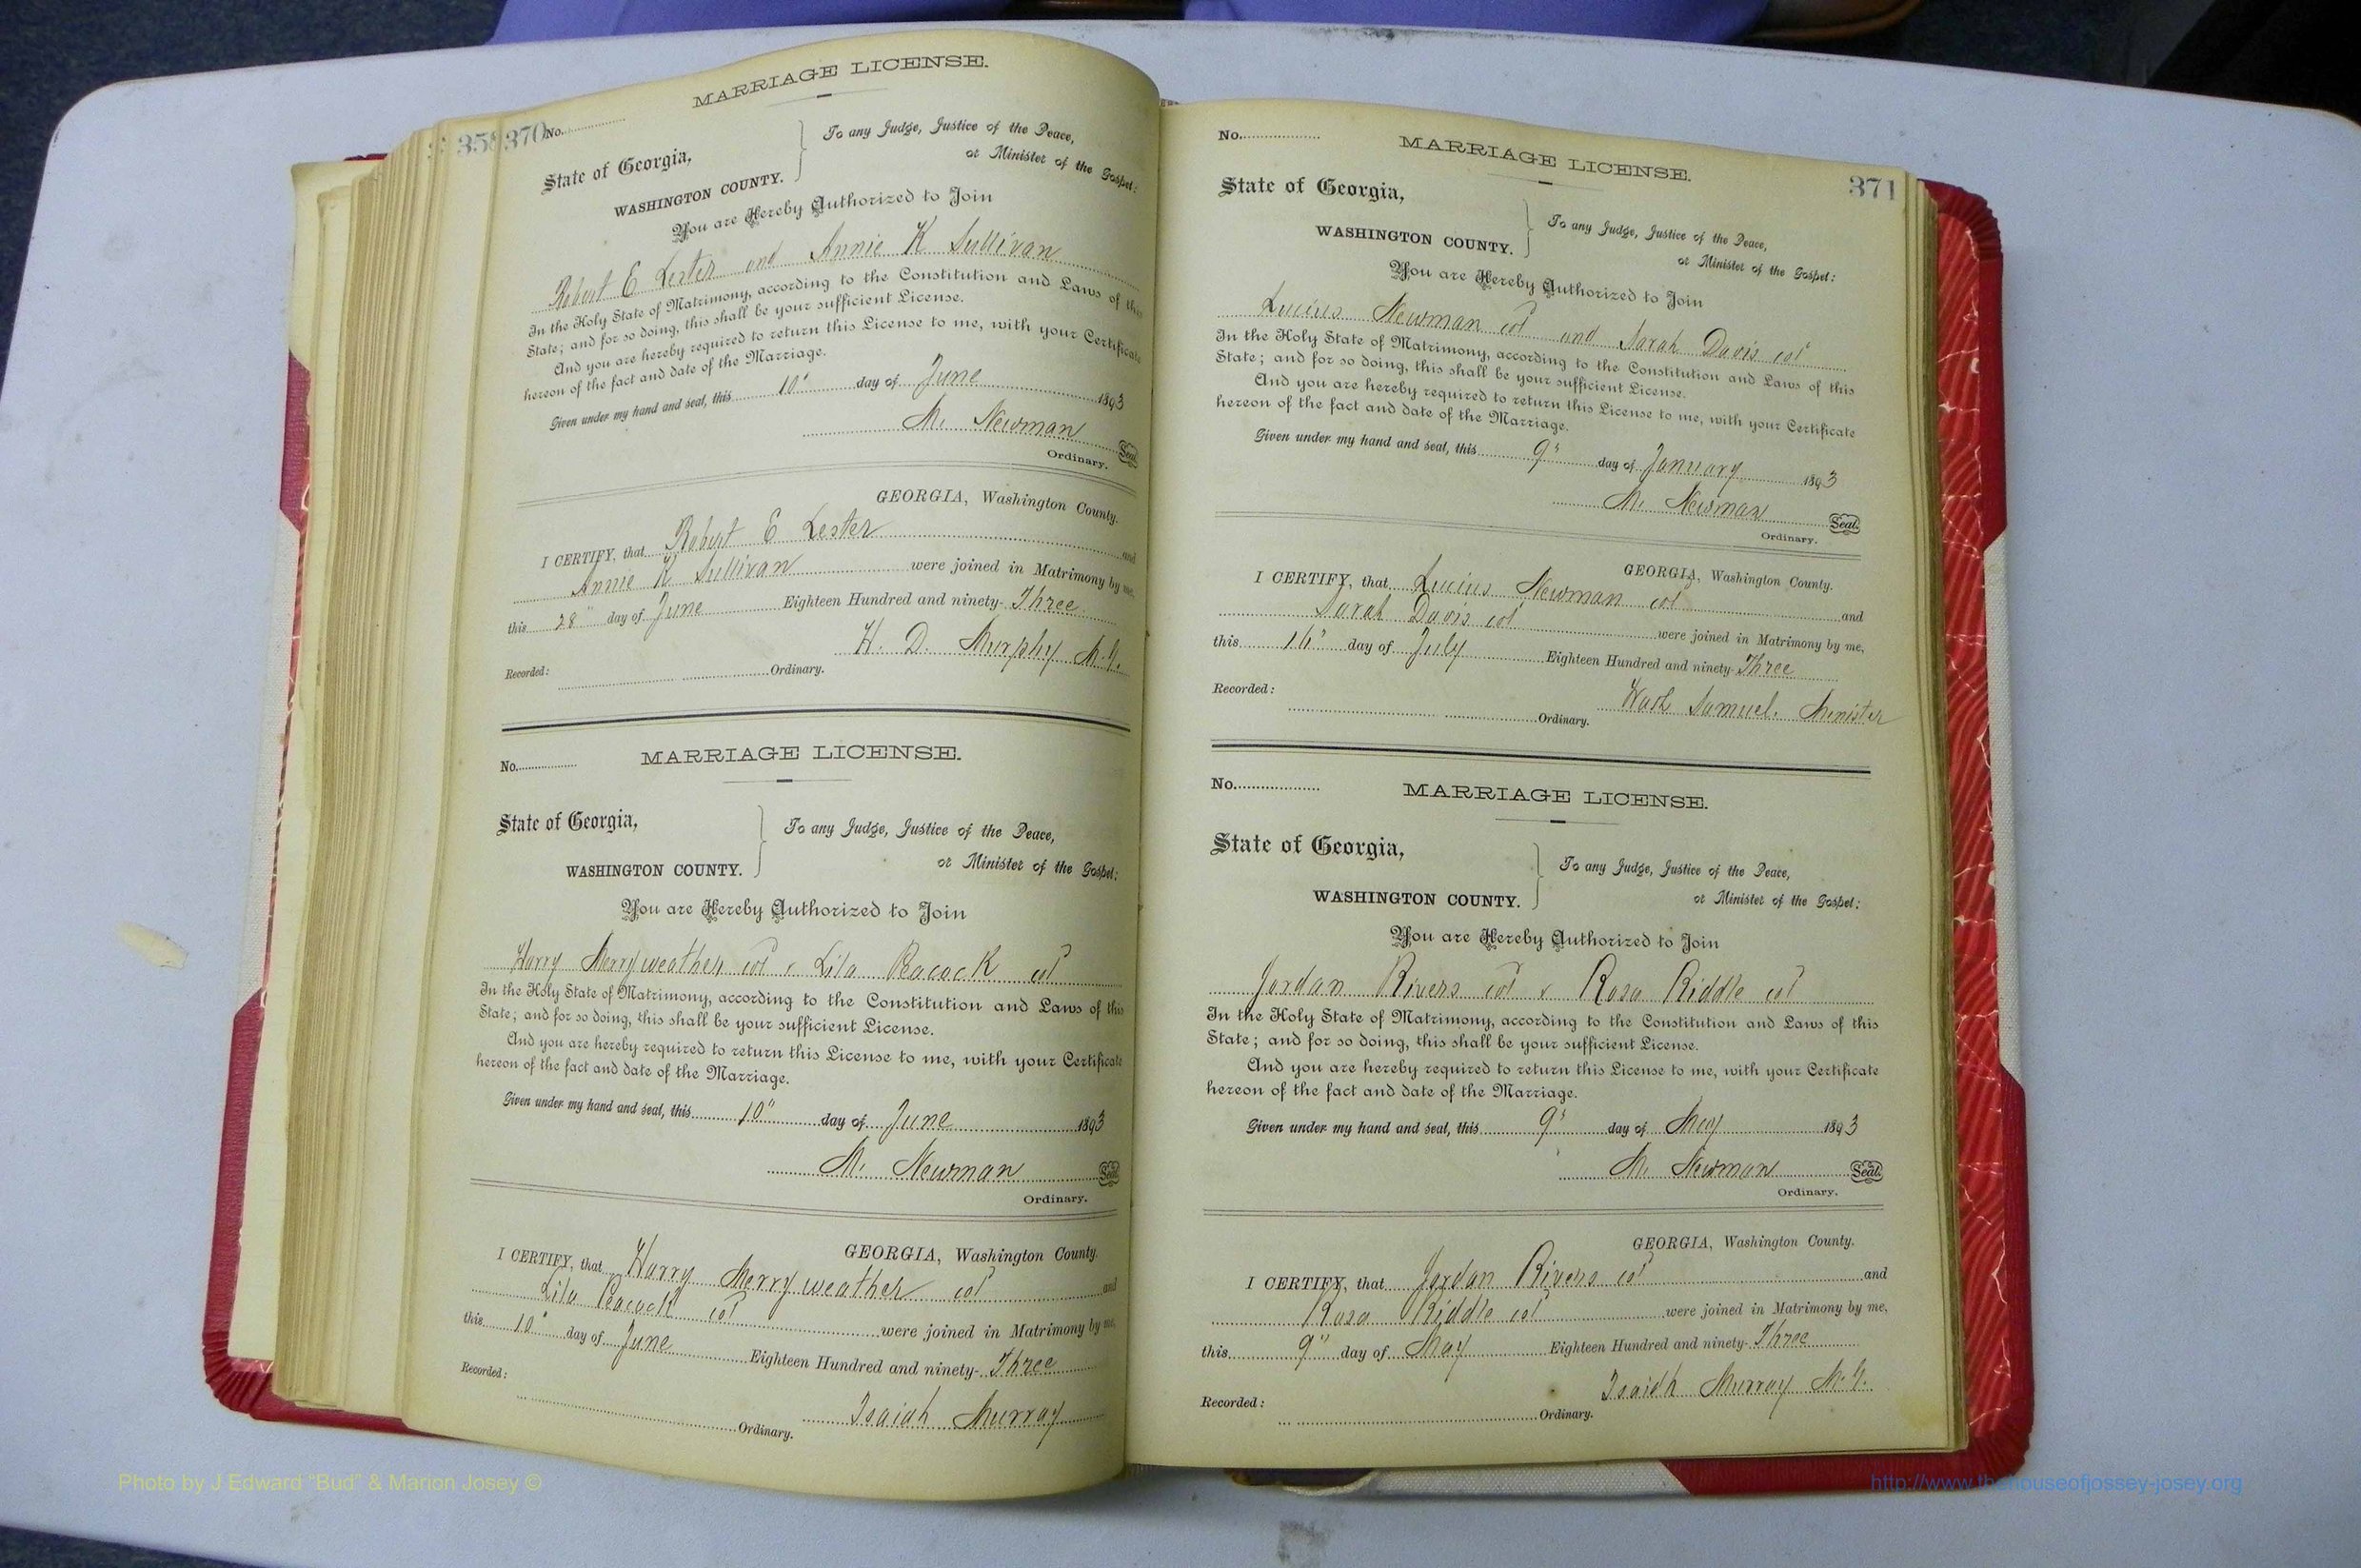 MARRIAGE LICENSE.
358 370 No.
State of Georgia,
WASHINGTON COUNTY.
To any Judge, Justice of the Peace,
or Minister of the Gospel:
You are Hereby Authorized to Join
Robert E Lester and Annie K Sullivan
In the Holy State of Matrimony, according to the Constitution and Laws of this
State; and for so doing, this shall be your sufficient License.
And you are hereby required to return this License to me, with your Certificate
hereon of the fact and date of the Marriage.
Given under my hand and seal, this 10" day of June 1893
M. Newman Seal
Ordinary.
GEORGIA, Washington County.
I CERTIFY, that Robert E Lester and
Annie K Sullivan were joined in Matrimony by me,
this 28" day of June Eighteen Hundred and ninety-Three
H. D. Murphy M.G.
Recorded: Ordinary.
MARRIAGE LICENSE.
No.
State of Georgia,
WASHINGTON COUNTY.
To any Judge, Justice of the Peace,
or Minister of the Gospel:
You are Hereby Authorized to Join
Harry Merryweather col & Lila Peacock col
In the Holy State of Matrimony, according to the Constitution and Laws of this
State; and for so doing, this shall be your sufficient License.
And you are hereby required to return this License to me, with your Certificate
hereon of the fact and date of the Marriage.
Given under my hand and seal, this 10" day of June 1893
M. Newman Seal
Ordinary.
GEORGIA, Washington County.
I CERTIFY, that Harry Merryweather col and
Lila Peacock col were joined in Matrimony by me,
this 10" day of June Eighteen Hundred and ninety-Three
Isaiah Murray
Recorded: Ordinary.
No.
MARRIAGE LICENSE.
371
State of Georgia,
WASHINGTON COUNTY.
To any Judge, Justice of the Peace,
or Minister of the Gospel:
You are Hereby Authorized to Join
Lucius Newman col and Sarah Davis col
In the Holy State of Matrimony, according to the Constitution and Laws of this
State; and for so doing, this shall be your sufficient License.
And you are hereby required to return this License to me, with your Certificate
hereon of the fact and date of the Marriage.
Given under my hand and seal, this 9" day of January 1893
M. Newman Seal.
Ordinary.
GEORGIA, Washington County.
I CERTIFY, that Lucius Newman col and
Sarah Davis col were joined in Matrimony by me,
this 16" day of July Eighteen Hundred and ninety-Three
Wash Samuel. Minister
Recorded: Ordinary.
No.
MARRIAGE LICENSE.
State of Georgia,
WASHINGTON COUNTY.
To any Judge, Justice of the Peace,
or Minister of the Gospel:
You are Hereby Authorized to Join
Jordan Rivers col & Rosa Riddle col
In the Holy State of Matrimony, according to the Constitution and Laws of this
State; and for so doing, this shall be your sufficient License.
And you are hereby required to return this License to me, with your Certificate
hereon of the fact and date of the Marriage.
Given under my hand and seal, this 9" day of May 1893
M. Newman Seal.
Ordinary.
GEORGIA, Washington County.
I CERTIFY, that Jordan Rivers col and
Rosa Riddle col were joined in Matrimony by me,
this 9" day of May Eighteen Hundred and ninety-Three
Isaiah Murray M.G.
Recorded: Ordinary.
Photo by J Edward "Bud" & Marion Josey ©
http://www.thehouseofjossey-josey.org